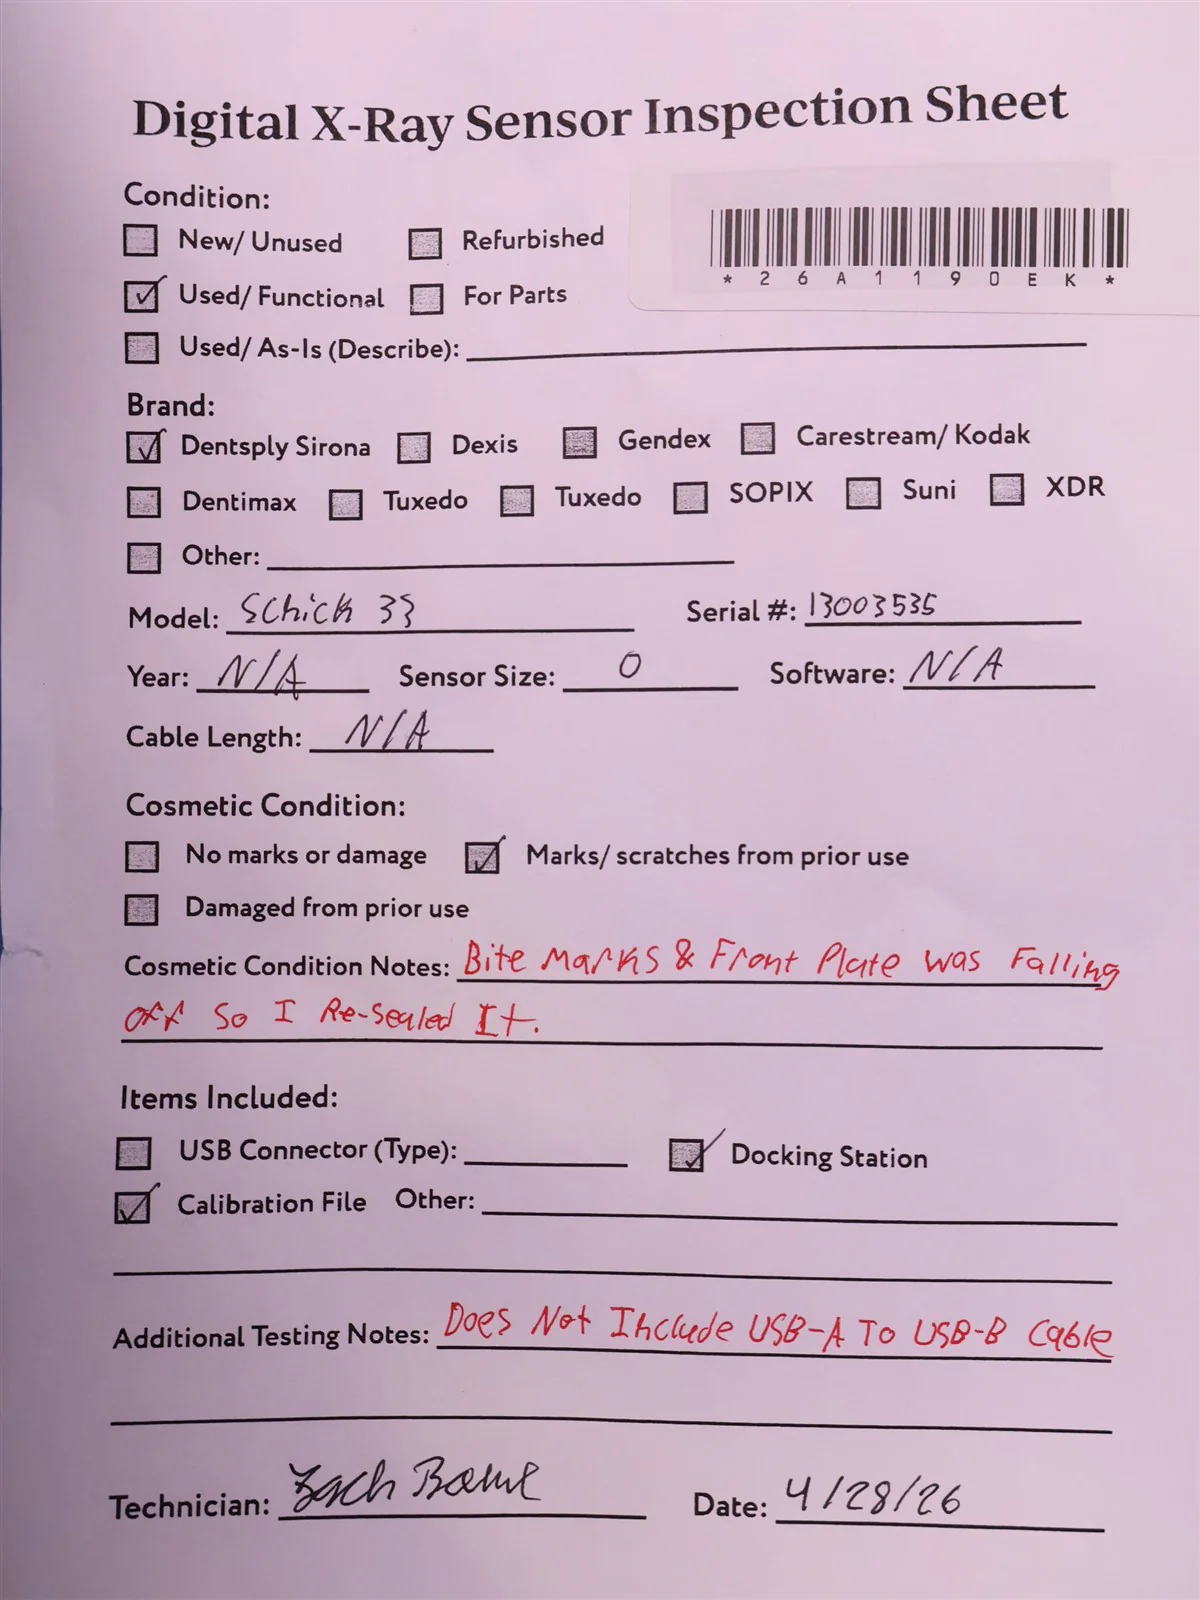 Digital X-Ray Sensor Inspection Sheet
Condition:
New/ Unused Refurbished
*26A1190EK*
Used/ Functional For Parts
Used/ As-Is (Describe):
Brand:
Dentsply Sirona Dexis Gendex Carestream/ Kodak
Dentimax Tuxedo Tuxedo SOPIX Suni XDR
Other:
Model: Schick 33 Serial #: 13003535
Year: N/A Sensor Size: 0 Software: N/A
Cable Length: N/A
Cosmetic Condition:
No marks or damage Marks/ scratches from prior use
Damaged from prior use
Cosmetic Condition Notes: Bite Marks & Front Plate was Falling
off So I Re-Sealed It.
Items Included:
USB Connector (Type): Docking Station
Calibration File Other:
Additional Testing Notes: Does Not Include USB-A To USB-B Cable
Technician: Zach Date: 4/28/26